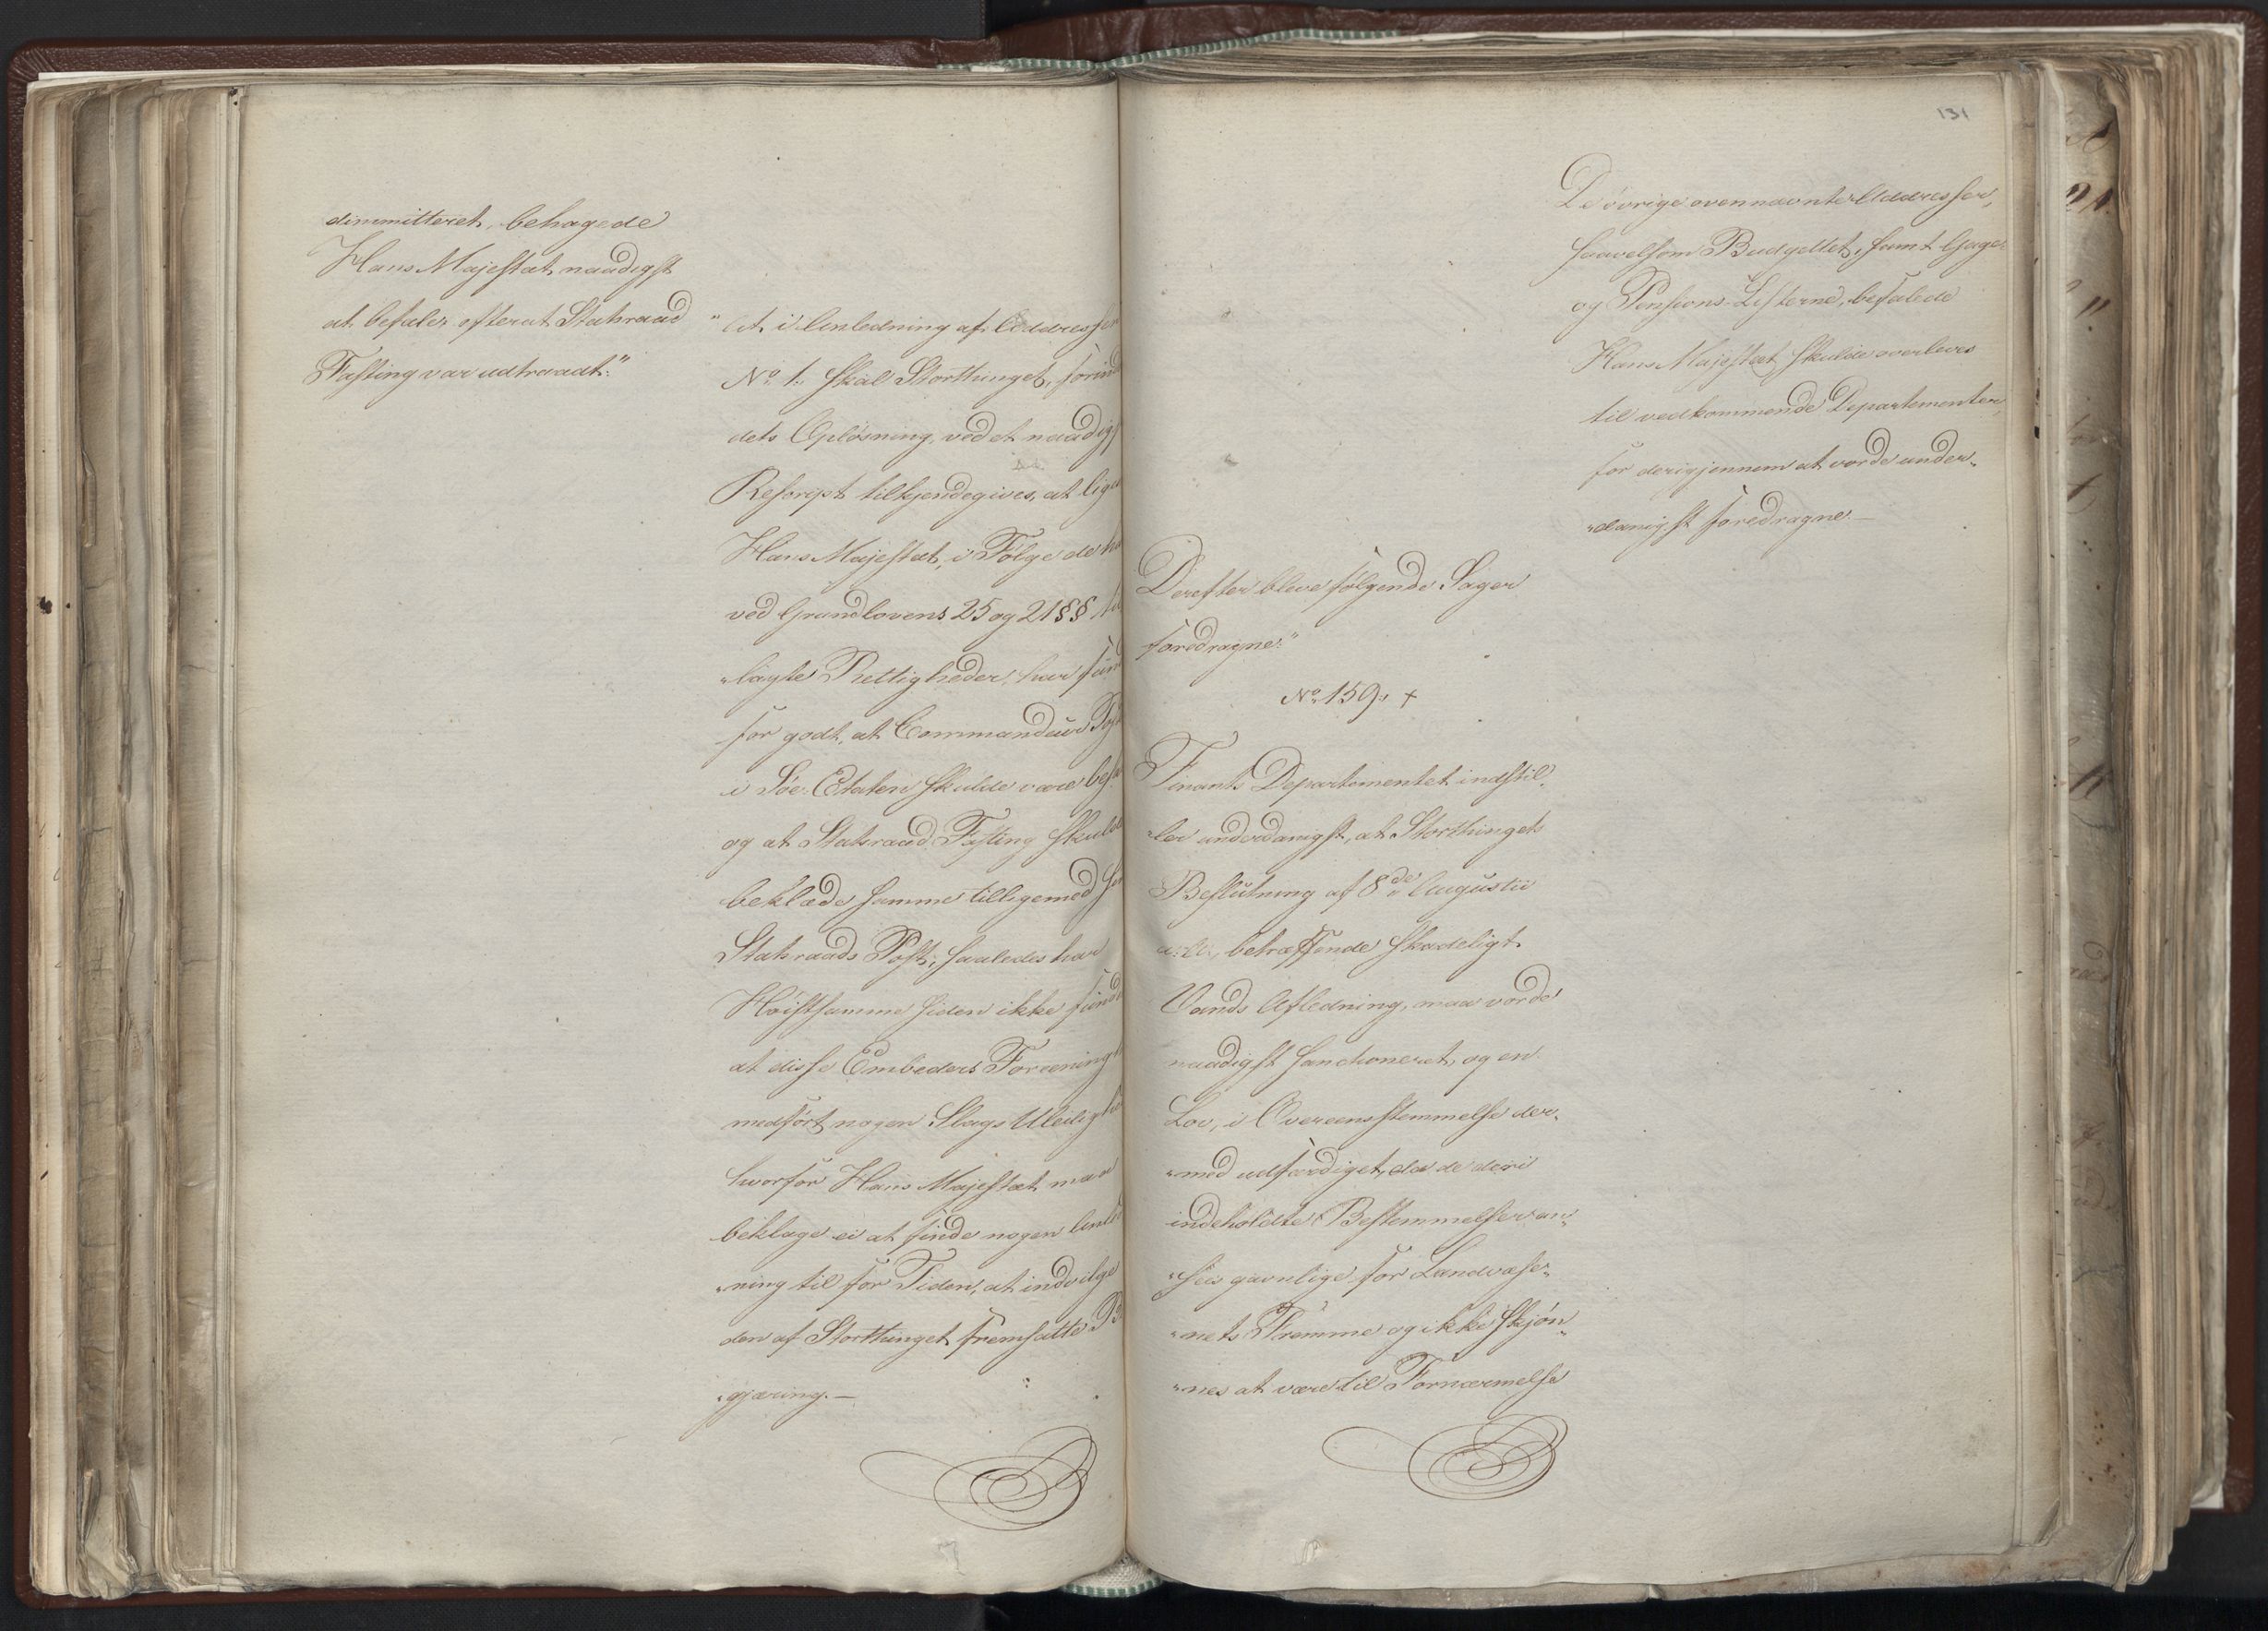 dimmitteret, behagede
Hans Majestæt naadigst
at befale, efterat Statsraad
Fasting var udtraadt:"
"At i Anledning af Addressen
No. 1. skal Storthinget, førend
dets Opløsning, ved et naadigst
Rescript tilkjendegives, at lige
Hans Majestæt, i Følge de
ved Grundlovens 25 og 21 §§
"lagte Rettigheder, har
for godt, at Commandeur
i Søe-Etaten skulde være
og at Statsraad Fasting skulde
beklæde samme tilligemed
Statsraads Post; saaledes har
Høistsamme siden ikke
at disse Embeders Forening
medført nogen Slags Uleilig
hvorfor Hans Majestæt maa
beklage ei at finde nogen Anled
"ning til for Tiden, at indvilge
den af Storthinget fremsatte
"gjæring.—
131
De øvrige ovennævnte Addresser,
saavelsom Budgettet, samt Gage
og Pensions-Listerne, befalede
Hans Majestæt skulde overleves
til vedkommende Departementer,
for derigjennem at vorde under-
"danigst foredragne.—
Derefter bleve følgende Sager
foredragne:"
No. 159. +
Finants Departementet indstil-
"ler underdanigst, at Storthingets
Beslutning af 8de Augustii
a: c:, betræffende skadeligt
Vands Afledning, maa vorde
naadigst sanctioneret, og en
Lov, i Overeensstemmelse der-
"med udfærdiget, da de deri
indeholdte Bestemmelser an-
"sees gavnlige for Landvæse-
"nets Fremme og ikke skjøn-
"nes at være til Fornærmelse